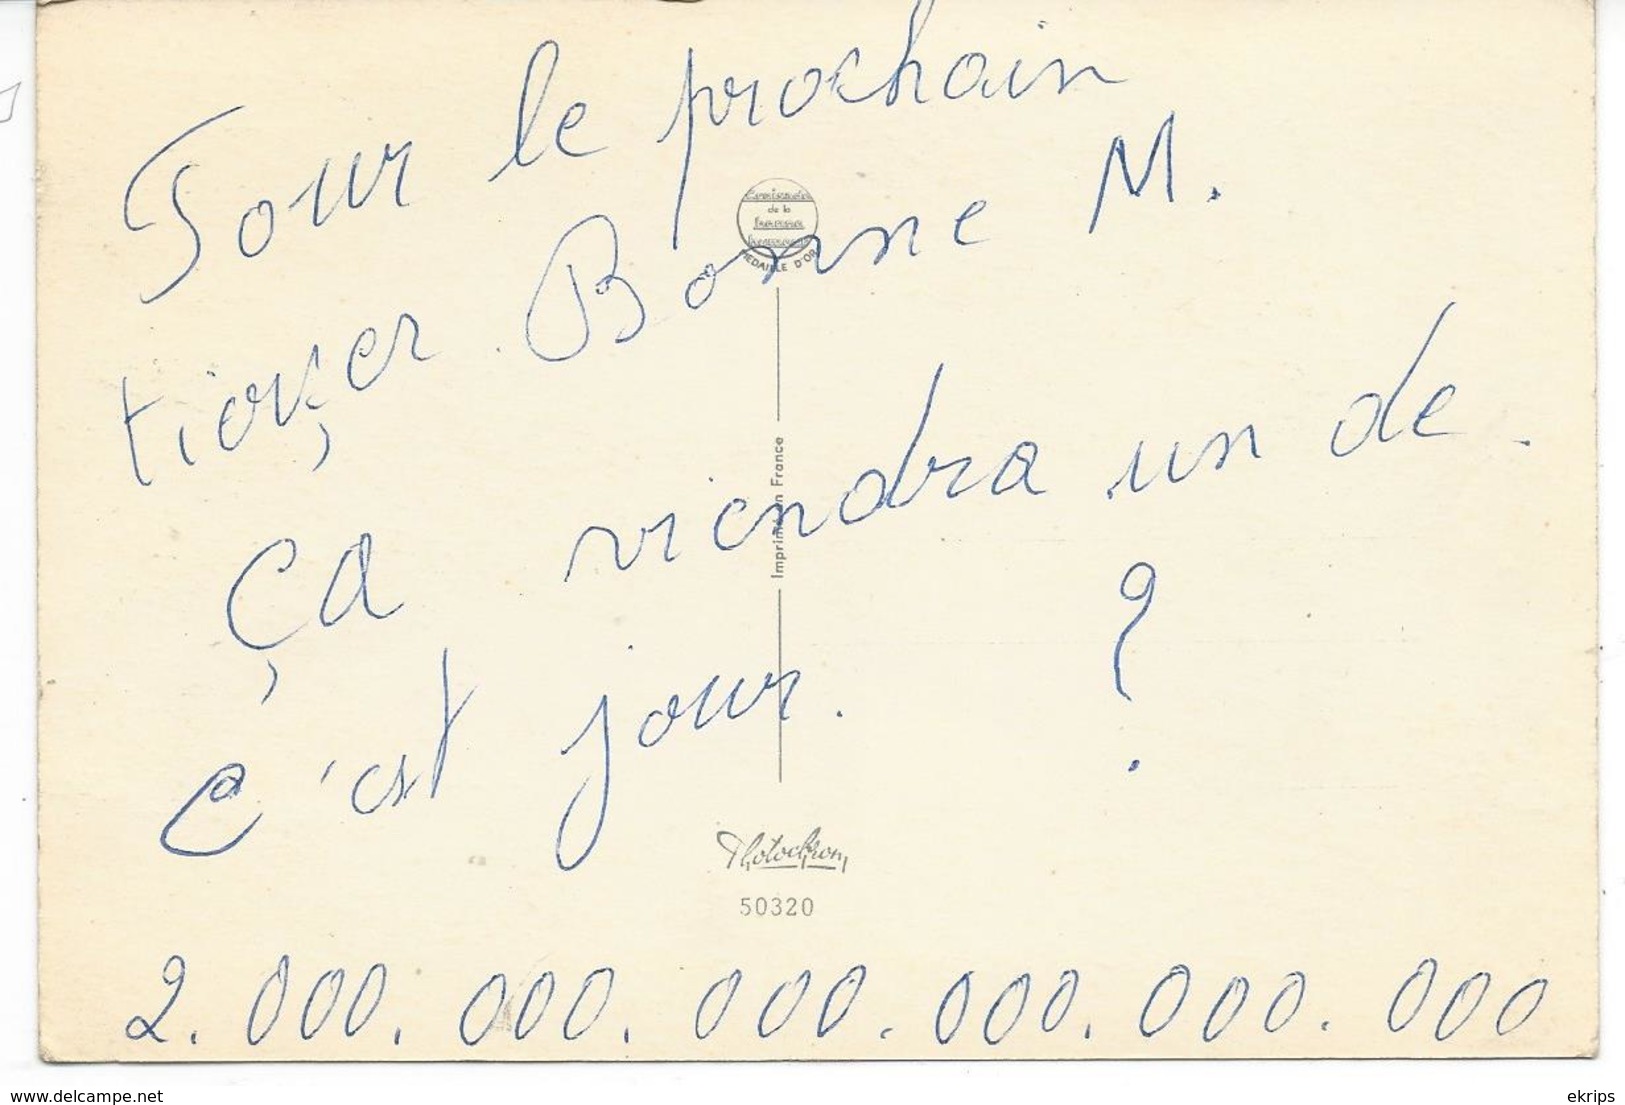 Pour le prochain
tierçer. Bonne M.
Ça viendra un de.
c'est jour. ?
2.000.000.000.000.000.000
de la
MEDAILLE D'OR
Imprimé en France
Photochrom
50320
www.delcampe.net
ekrips